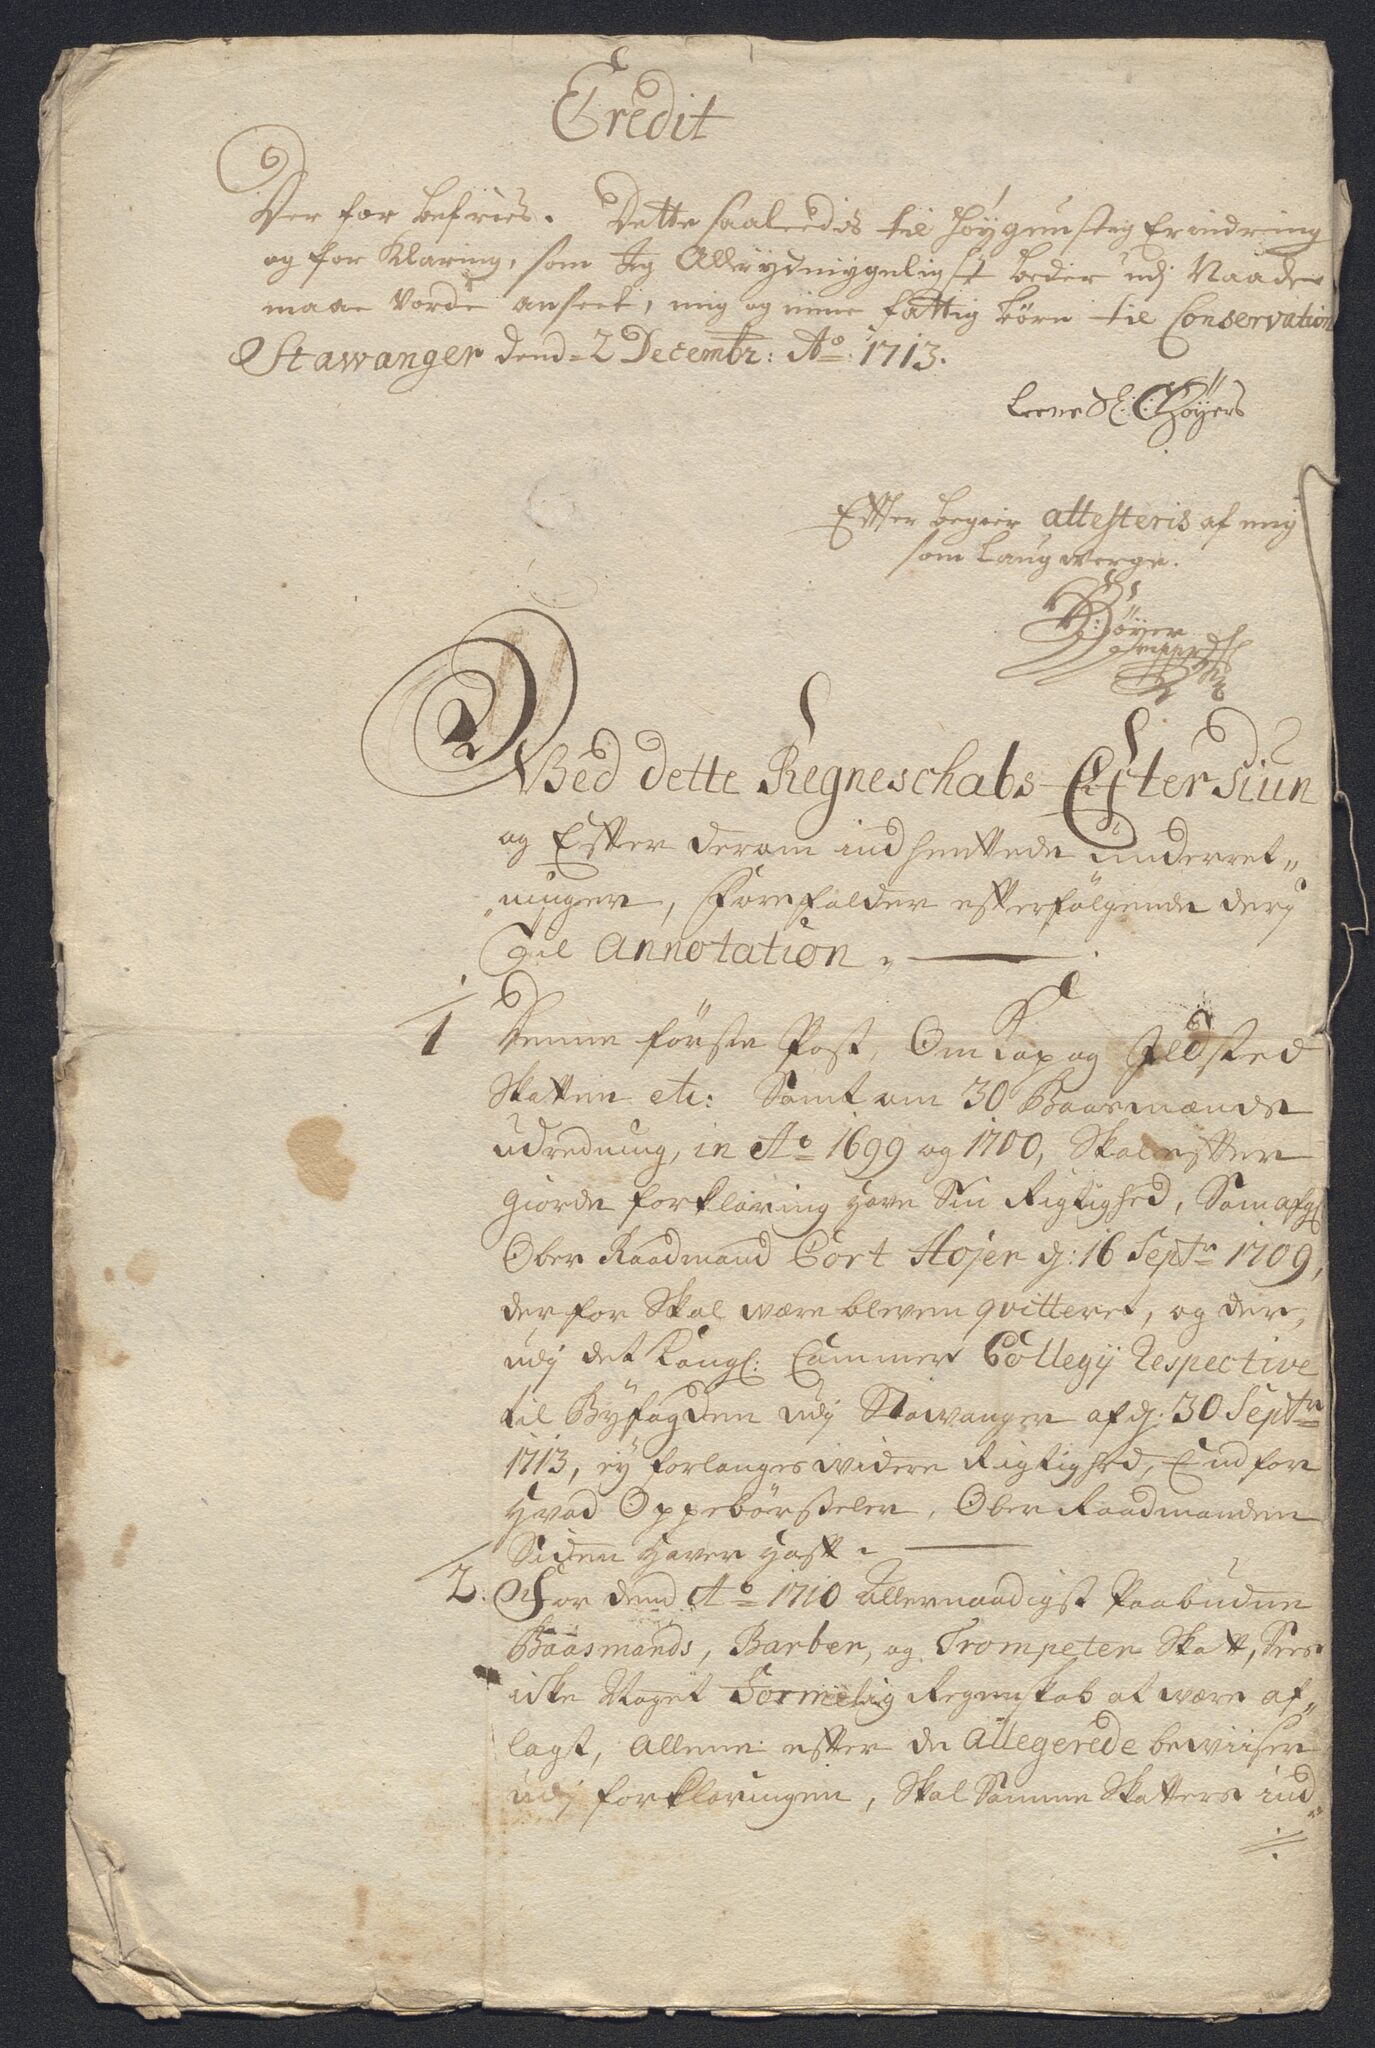 Credit
Der for befries. Dette saaleedis til Høygunstig Erindring
og for Klaring, som Jeg Allerydmygeligst beder udj Naade
maae vorde anseet, mig og mine fattig børn til Conservation
Stawanger dend 2 Decembr: Ao: 1713.
Leene Sl: Høyers
Efter begier attesteris af mig
som Laugwerge.
Höyer
Wed dette Regneschabs Eftersiun
og Efter derom indhentede underret„
„ninger, forefalder efterfølgende derj
Til Annotation.
1 Denne förste Post, Om Kop og Jldsted
Skatten etc: Samt om 30 Baasmænds
udredning, in Ao 1699 og 1700, Skal efter
giorde forklaring have Sin Rigtighed, Som afg:
Ober Raadmand Cort Hojer d: 16 Septr 1709,
derfor Skal være bleven qvitteret, og der,
udj det Kongl: Cammer Collegij Respective
til Byfogden udj Stawanger af d: 30 Septr
1713, ey forlanges widere Rigtighed, End for
hvad Oppebörßeler, Ober Raadmanden
Siden haver haft.
2. For dend Ao 1710 Allernaadigst Paabudne
Baasmands, Barber, og Trompeter Skatt, Sees
icke Noget Formelig Regenskab at være af„
lagt, Allene efter de Allegerede beviiser
udj forklaringen, Skal Samme Skatters ind„